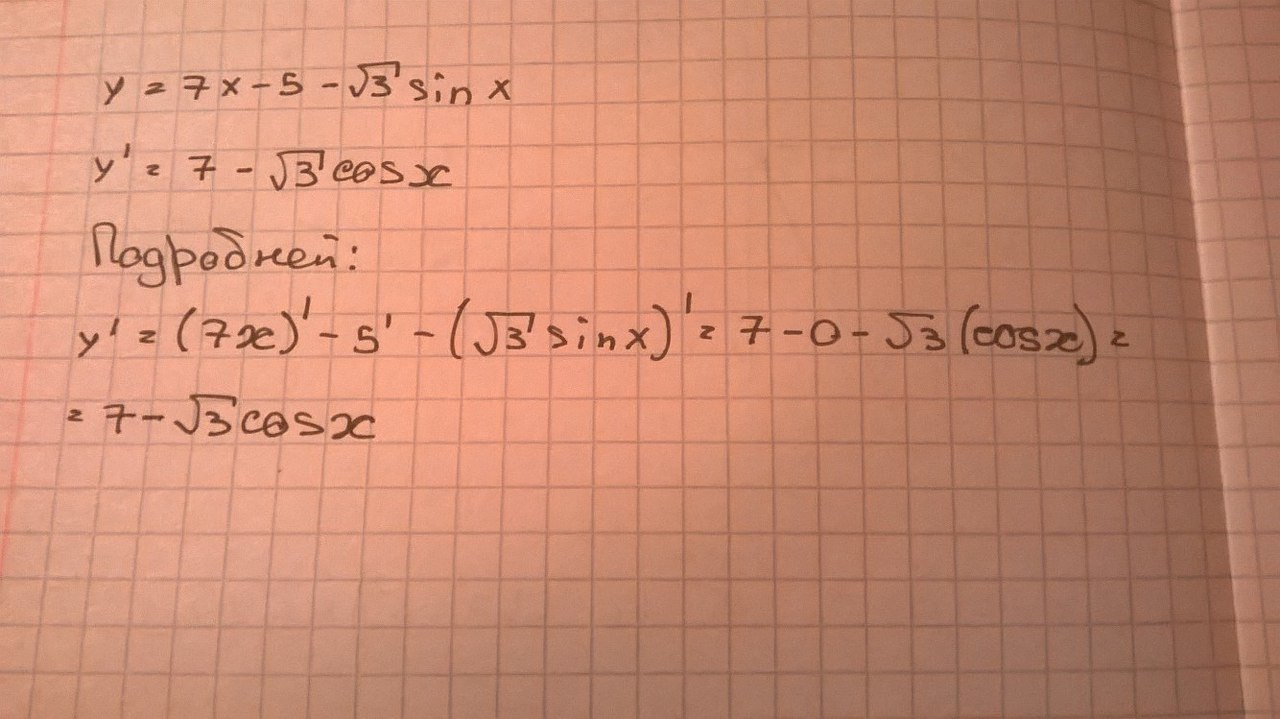 y = 7x - 5 - √3 sin x
y' = 7 - √3 cos x
Подробней:
y' = (7x)' - 5' - (√3 sin x)' = 7 - 0 - √3 (cos x) =
= 7 - √3 cos x